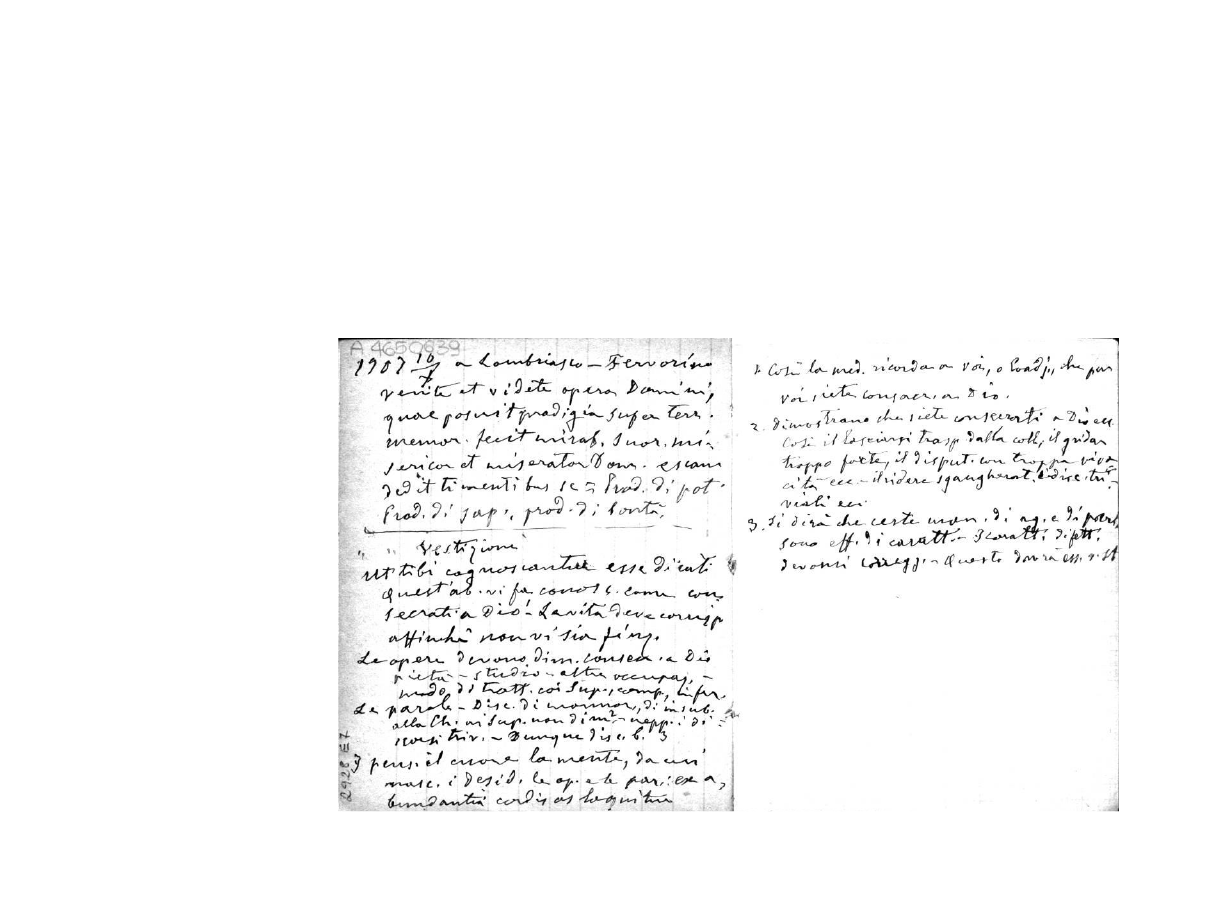 A 4650839
1907 10/X a Lombriasco - Fervorino
venite et videte opera Domini,
quae posuit prodigia super terr.
memor. fecit mirab. suor. mi-
sericor et miserator Dom. escam
dedit timentibus se = Prod. di pot.
Prod. di sap., prod. di bontà.
" " Vestizione
ut tibi cognoscantur esse dicati
Quest'ab. vi fa conosc. come con
secrati a Dio - La vita deve corrisp
affinchè non vi sia finz.
Le opere devono dim. consecr. a Dio
pietà - studio - altre occupaz. -
modo di tratt. coi Sup., comp., infer.
Le parole - Disc. di mormor., di insub.
alla Ch. ai Sup. non dim. - nepp. i di-
scorsi triv. - Dunque disc. b.
I pens. il cuore la mente, da cui
nasc. i desid. le op. e le par.: ex a,
bundantia cordis os loquitur
292C E7
1. Così la med. ricorda a voi, o Coadj., che pur
voi siete consacr. a Dio.
2. dimostrano che siete consecrati a Dio ecc.
Così il lasciarsi trasp. dalla coll., il gridar
troppo forte, il disput. con troppa viva
cità ecc - il ridere sgangherat., i disc. tri-
viali ecc
3. Si dirà che certe man. di ag. e di parl.
sono eff. di caratt. - I caratt. difett.
devonsi corregg. - Questo dovrà ess.